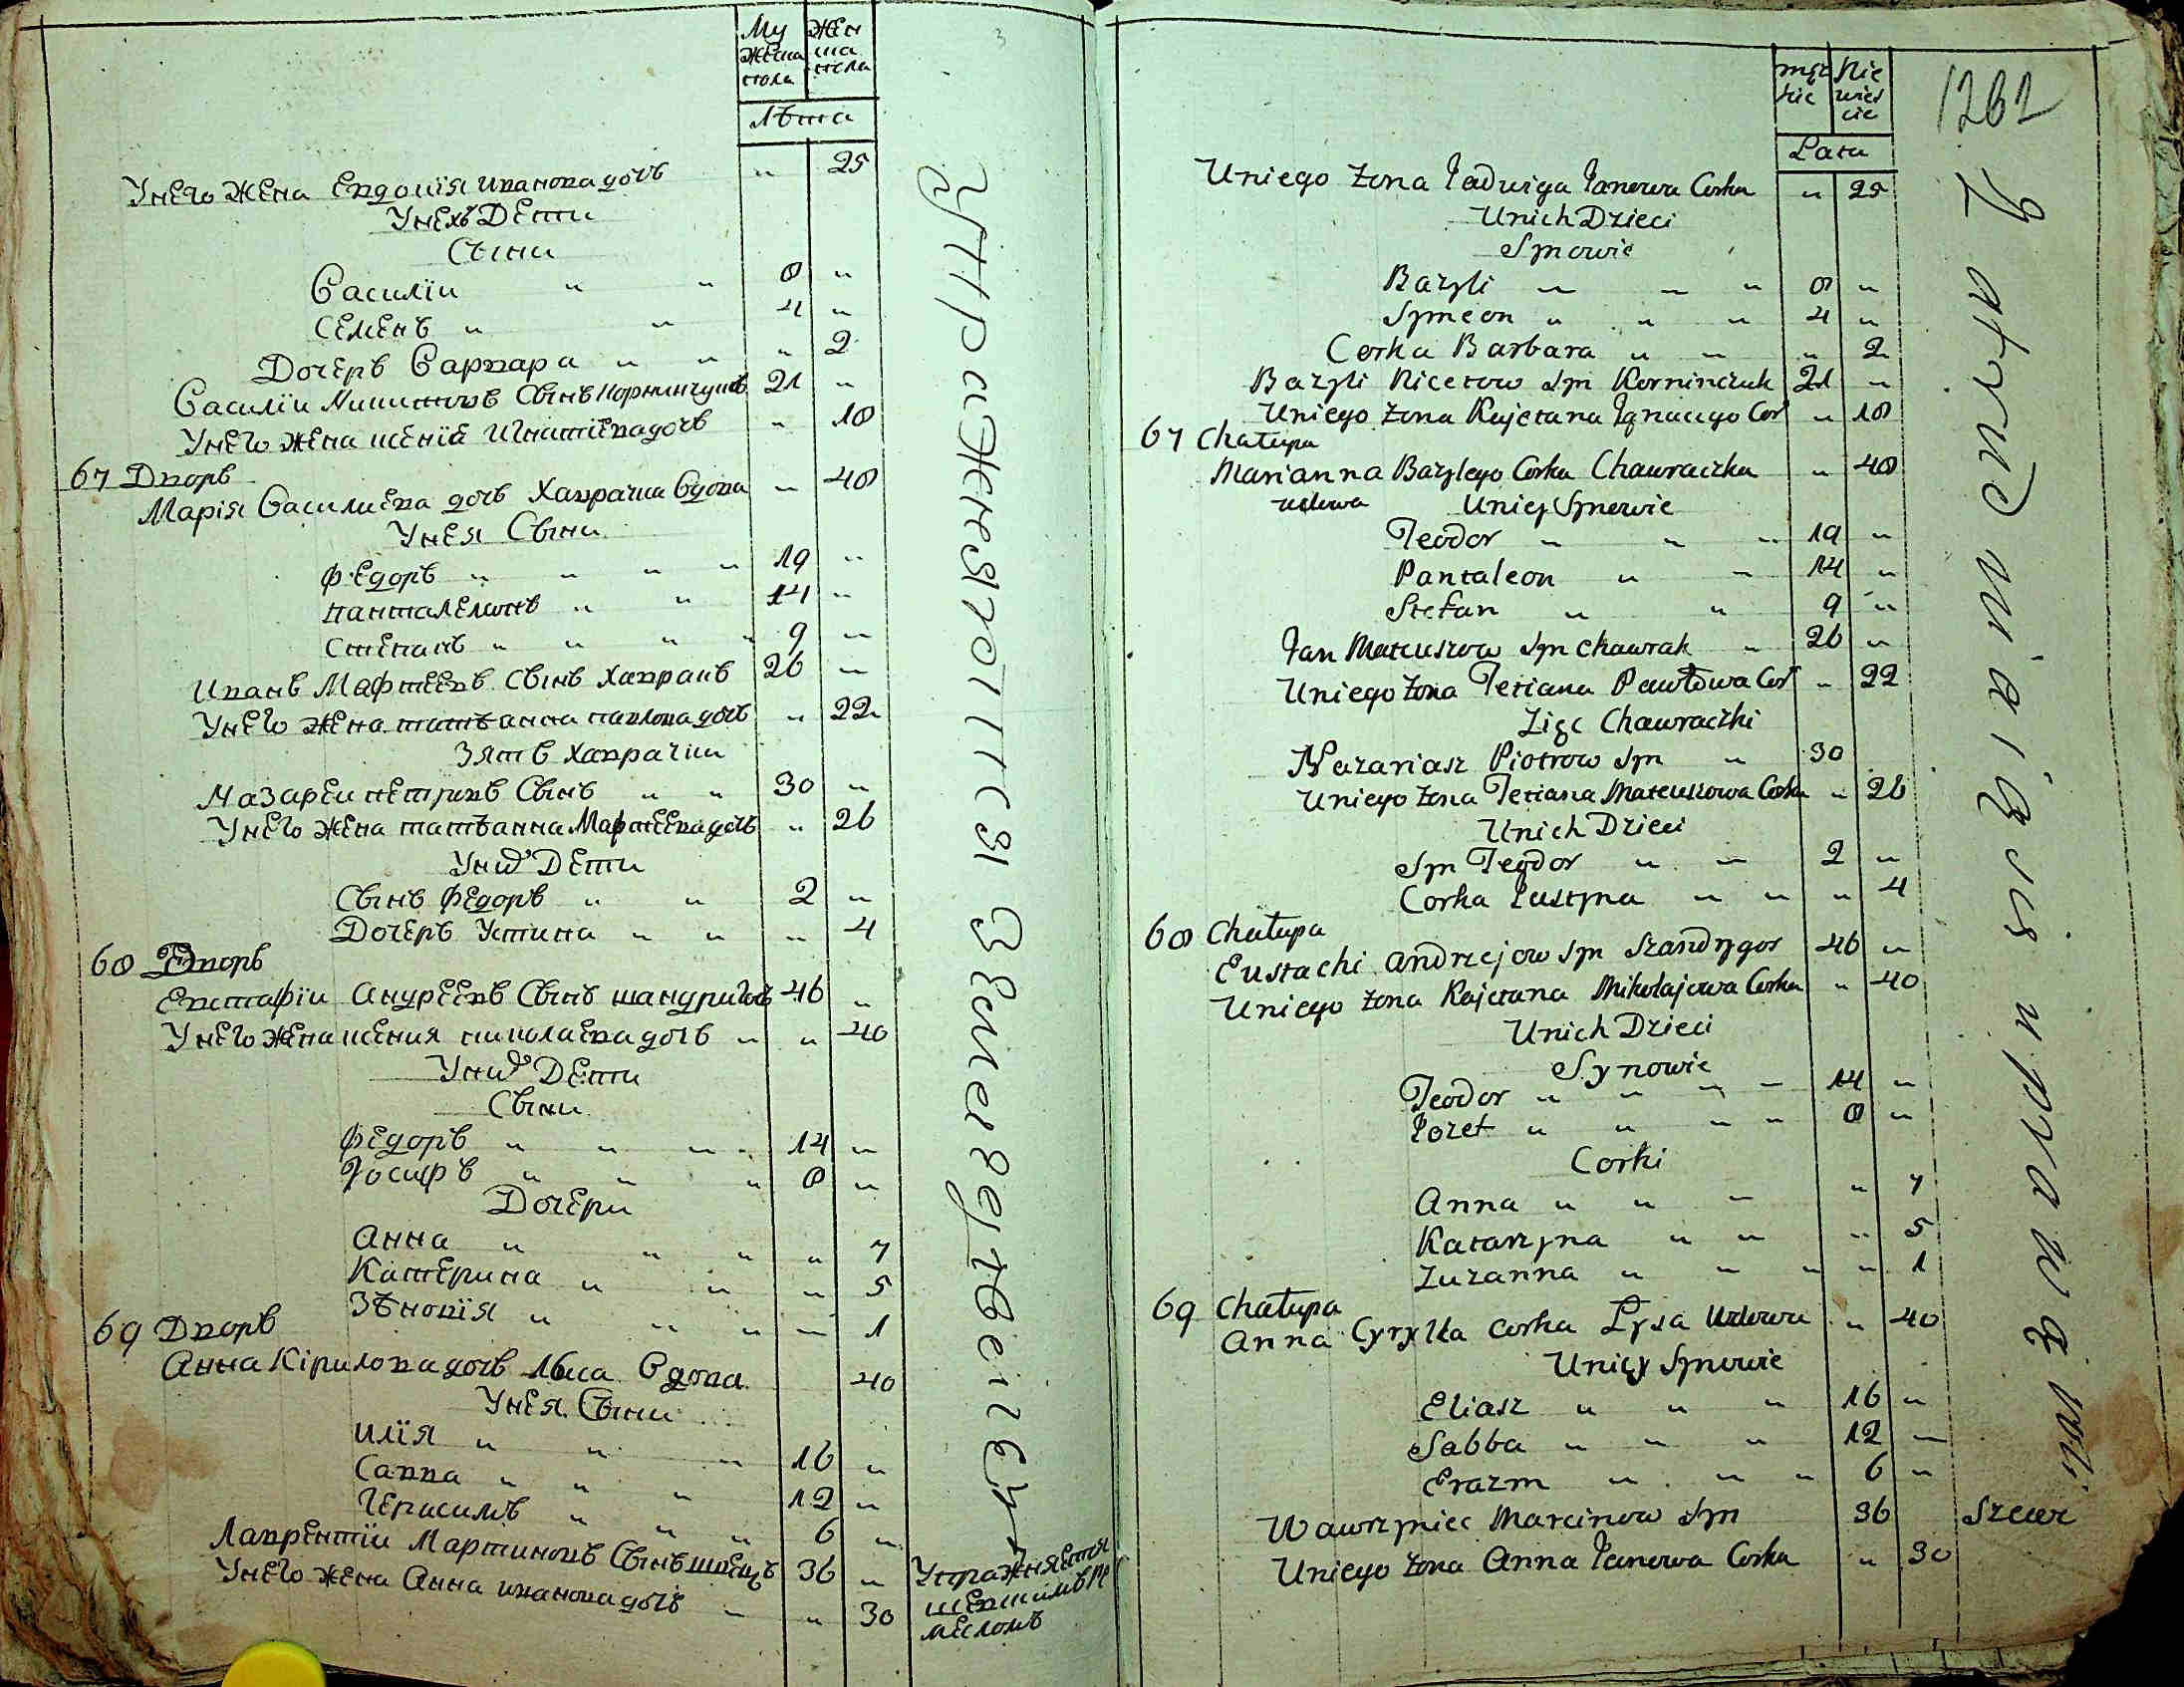 Му
жеска
пола
Жен
ска
пола
Лѣта
Унего жена Евдокія Иванова дочъ " 25
Унехъ Дети
Сыни
Василіи " " 8 "
Семенъ " " 4 "
Дочеръ Варвара " " " 2
Василіи Микитовъ Сынъ Корнинчукъ 21 "
Унего жена ксеніе Игнатіева дочъ " 18
67 Дворъ
Марія Василиева дочъ Хаврачка Вдова " 48
Унея Сыни
Федоръ " " " " 19 "
панталемонъ " " 14 "
Степанъ " " " " 9 "
Иванъ Мафтеевъ Сынъ Хавракъ 26 "
Унего жена татъанна павлова дочъ " 22
Зять Хаврачки
Назареи петровъ Сынъ " " 30 "
Унего жена татъанна Мафтеева дочъ " 26
Уних Дети
Сынъ Федоръ " " 2 "
Дочеръ Устина " " " 4
68 Дворъ
Евстафіи Андреевъ Сынъ шандригосъ 46 "
Унего жена ксения николаева дочъ " " 40
Уних Дети
Сыни
Федоръ " " " " 14 "
Йосифъ " " " 8 "
Дочери
Анна " " " " 7
Катерина " " " 5
Зѣновія " " " " 1
69 Дворъ
Анна Кірилова дочъ Лыса Вдова 40
Унея Сыни
Илія " " " 16 "
Савва " " " 12 "
Герасимъ " " " 6 "
Лаврентіи Мартиновъ Сынъ швецъ 36 "
Унего жена Анна иванова дочъ " " 30
Упражняются Вземледѣліем
Упражняется
шевскимъ Ре
месломъ
męz
kie
Nie
wieś
cie
Lata
1262
Uniego żona Jadwiga Janowa Corka " 25
Unich Dzieci
Synowie
Bazyli " " " 8 "
Symeon " " " 4 "
Corka Barbara " " " 2
Bazyli Nicetow Syn Korninczuk 21 "
Uniego żona Kajetana Ignacego Cor " 18
67 Chałupa
Marianna Bazylego Corka Chawraczka " 48
wdowa Uniey Synowie
Teodor " " " 19 "
Pantaleon " " 14 "
Stefan " " 9 "
Jan Mateuszow Syn Chawrak " 26 "
Uniego żona Tetiana Pawłowa Cor " 22
Zięc Chawraczki
Nazariasz Piotrow Syn " 30
Uniego żona Tetiana Mateuszowa Corka " 26
Unich Dzieci
Syn Teodor " " 2 "
Corka Justyna " " " 4
68 Chałupa
Eustachi Andrzejow Syn Szandrygos 46 "
Uniego żona Kajetana Mikołajowa Corka " 40
Unich Dzieci
Synowie
Teodor " " " " 14 "
Jozef " " " " 8 "
Corki
Anna " " " " 7
Katarzyna " " " 5
Zuzanna " " " " 1
69 Chałupa
Anna Cyryłła Corka Łysa Wdowa " 40
Uniey Synowie
Eliasz " " " 16 "
Sabba " " " 12 "
Erazm " " " 6 "
Wawrzyniec Marcinow Syn 36 Szewc
Uniego żona Anna Janowa Corka " 30